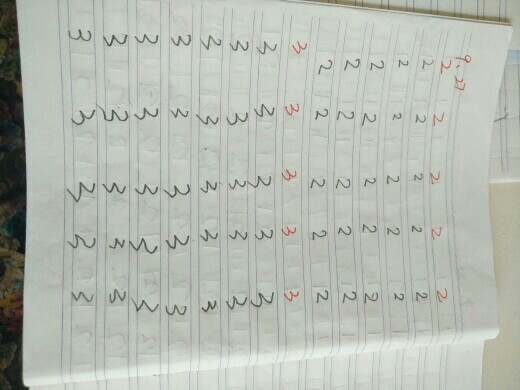 9.27
2 2 2 2 2
2 2 2 2 2
2 2 2 2 2
2 2 2 2 2
2 2 2 2 2
2 2 2 2 2
3 3 3 3 3
3 3 3 3 3
3 3 3 3 3
3 3 3 3 3
3 3 3 3 3
3 3 3 3 3
3 3 3 3 3
3 3 3 3 3